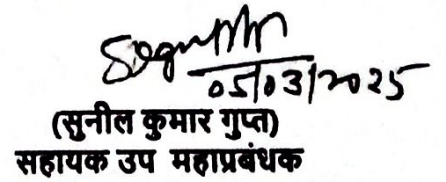 05/03/2025
(सुनील कुमार गुप्त)
सहायक उप महाप्रबंधक